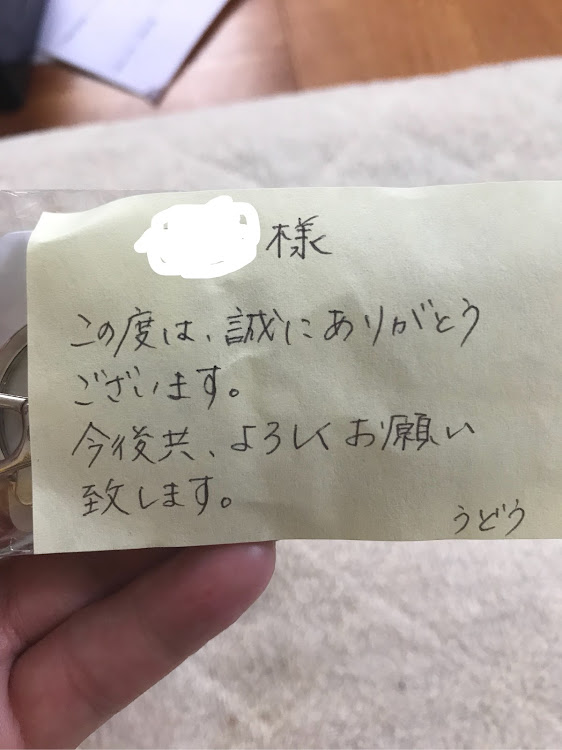 様
この度は、誠にありがとう
ございます。
今後共、よろしくお願い
致します。
うどう